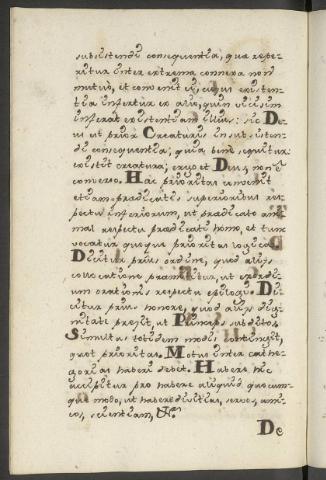 subsistendi consequentia, qua repe-
ritur inter extrema connexa non
mutuò, et convenit ei, cujus existen-
tia infertur ex alio, quin vicissim
inferat existentiam illius: sic De-
us est prior Creaturis in subsisten-
di consequentia, quia benè sequitur:
existit creatura; ergo et Deus, non è
converso. Hac prioritas convenit
etiam prædicatis superioribus res-
pectu inferiorum, ut prædicato ani-
mal respectu prædicati homo, et tunc
vocatur quoque prioritas logica.
Dicitur prius ordine, quod aliis
collocatione præmittitur, ut exordi-
um orationis respectu epilogi. Di-
citur prius honore, quod aliis dig-
nitate præit, ut Princeps subditos.
Simultas totidem modis contingit,
quot prioritas. Motus inter cathe-
gorias haberi debet. Habere hic
accipitur pro habere aliquid quocum-
que modo, ut habere divitias, servos, ami-
cos, scientiam, &c.
De